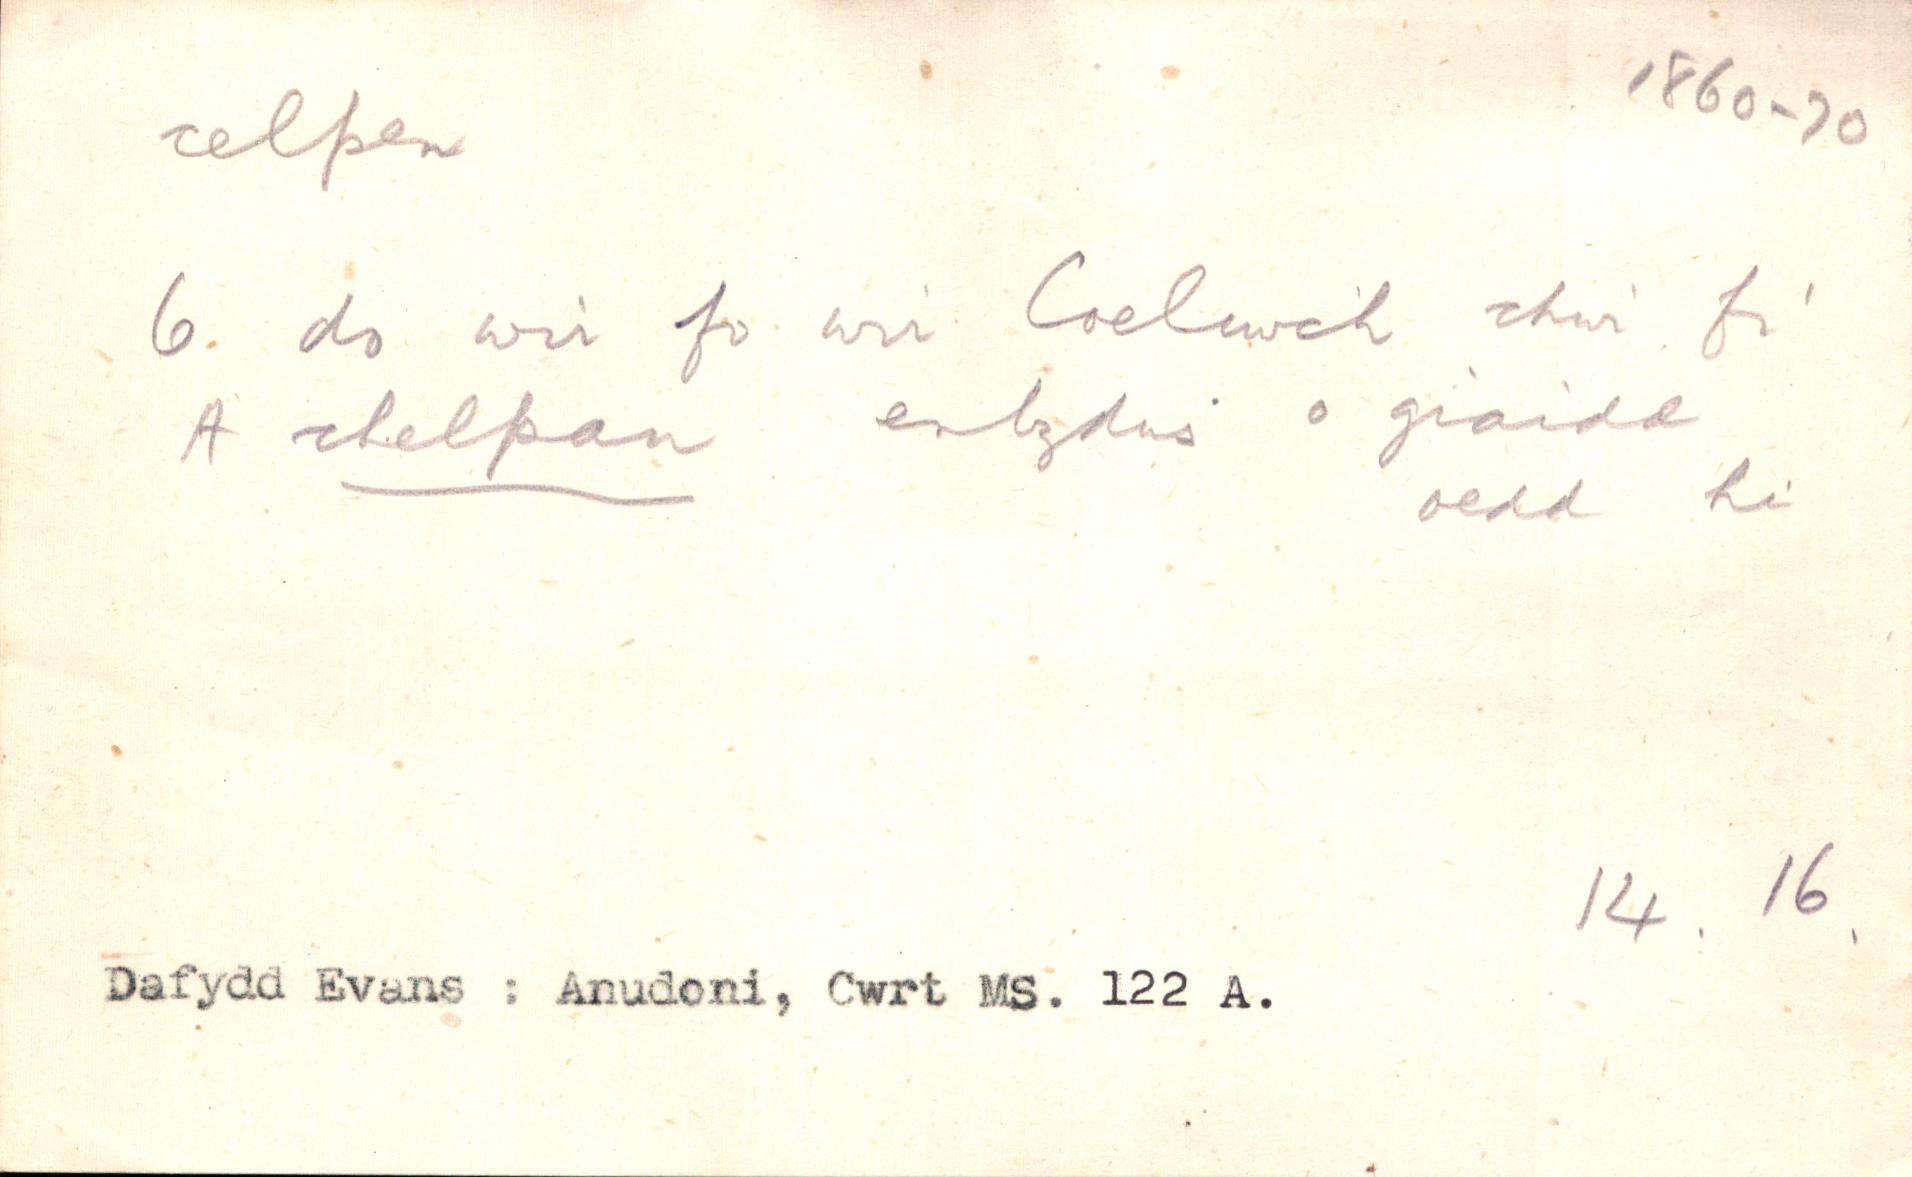 1860-70
celpen
O. do wir fo wir Coeliwch chwi fi
A chelpan enbydus o giaidd
oedd hi
14. 16.
Dafydd Evans : Anudoni, Cwrt MS. 122 A.